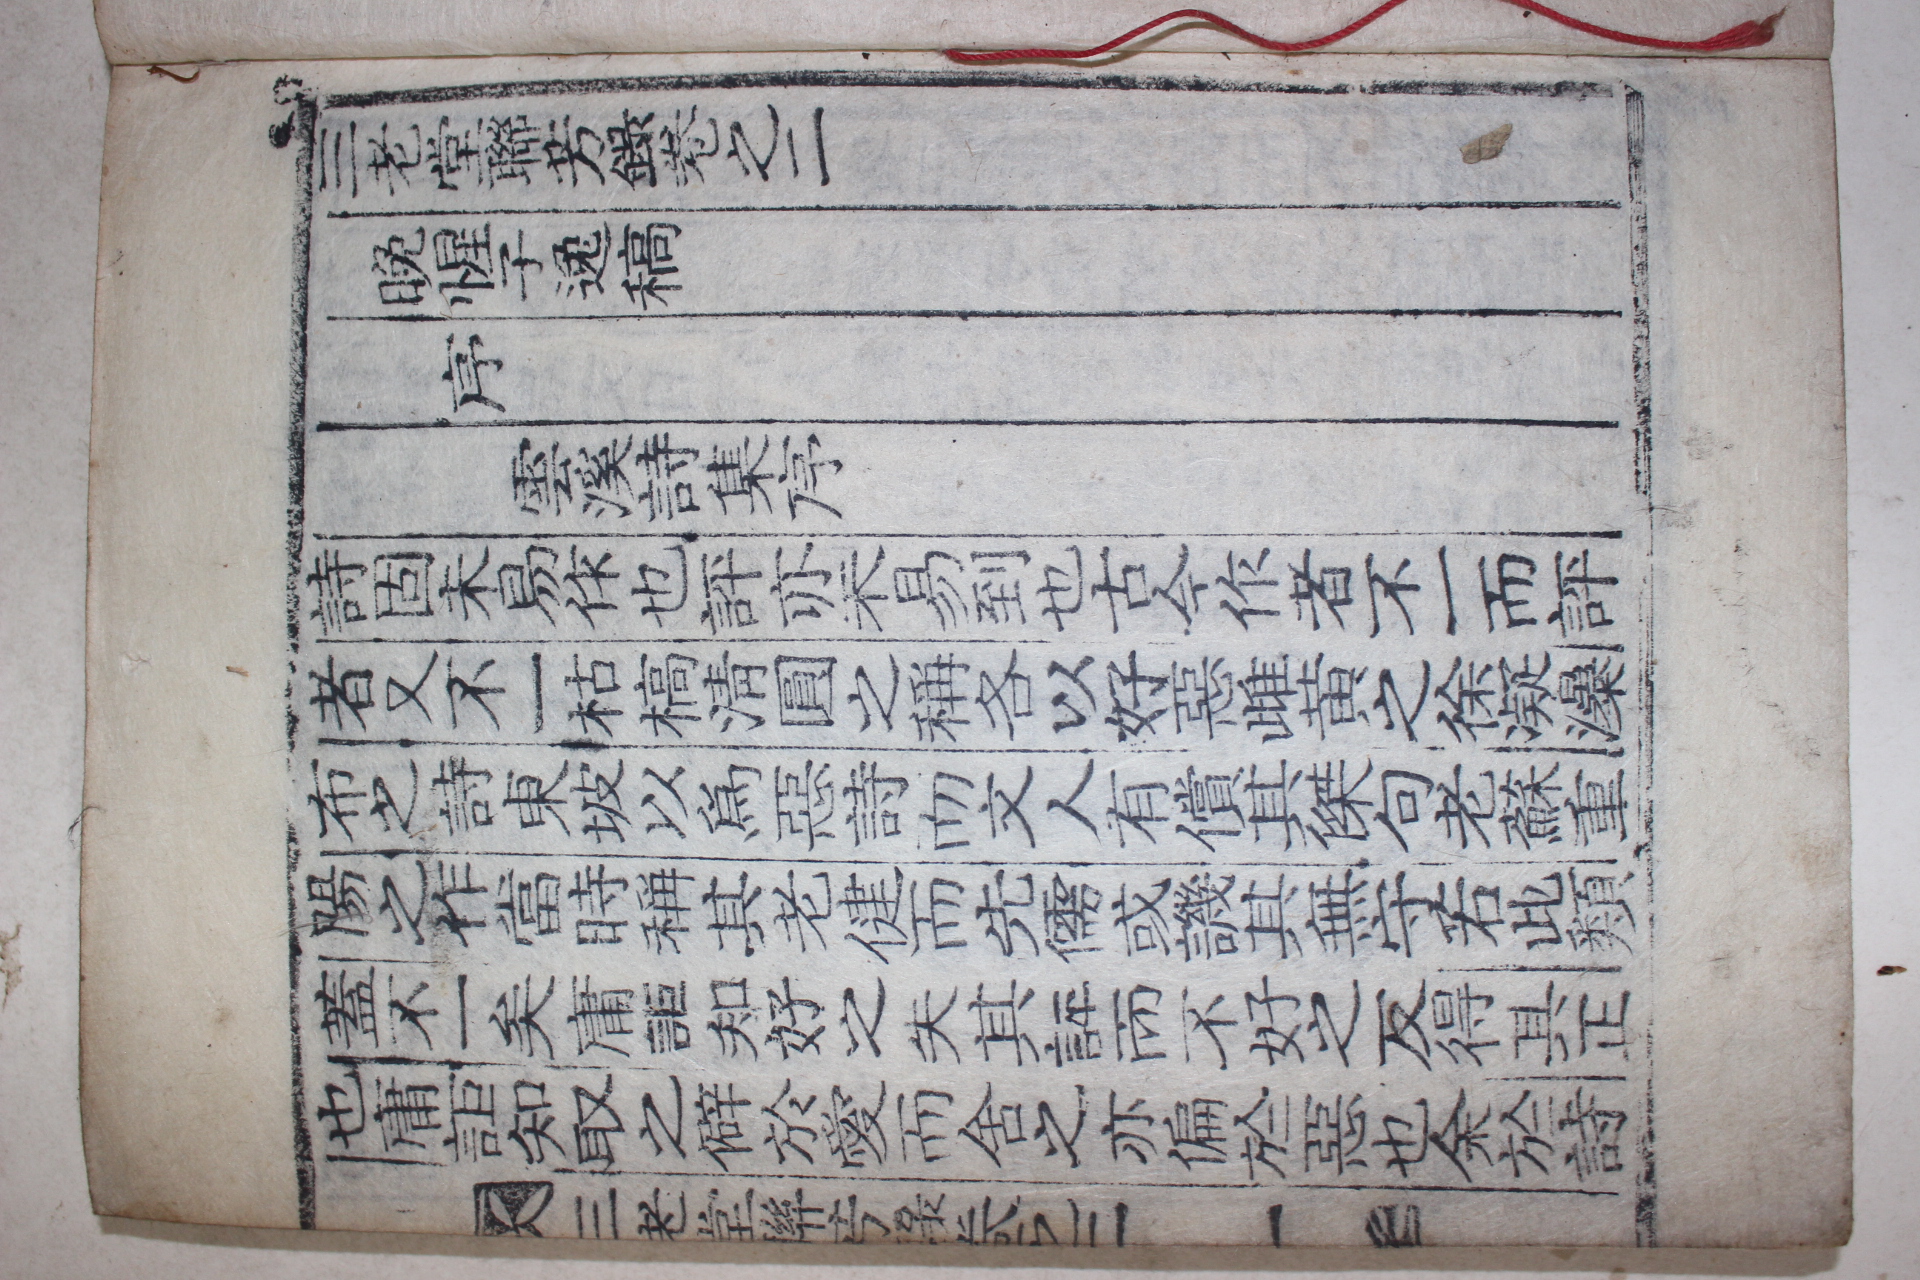 三老堂聯芳錄卷之二
晚惺子逸稿
序
雲溪詩集序
詩固未易作也評亦不易到也古今作者不一而評
者又不一枯槁淸圓之稱各以好惡雌黃之徐凝瀑
布之詩東坡以爲惡詩而文人有償其傑句老蘇重
陽之作當時稱其老健而先儒或譏其無守若此類
蓋不一矣庸詎知好之失其評而不好之反得其正
也庸詎知取之僻於愛而舍之亦偏於惡也余於詩
三老堂聯芳錄卷之二 一